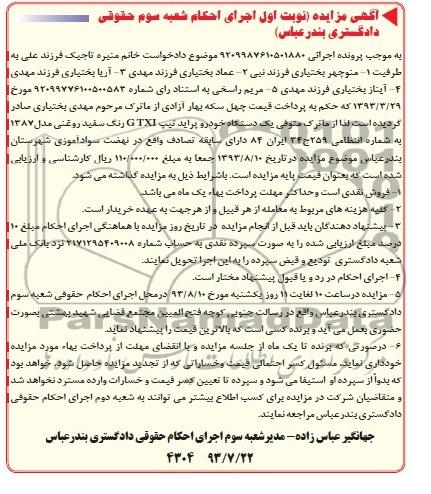 آگهی مزایده (نوبت اول اجرای احکام شعبه سوم حقوقی
دادگستری بندرعباس)
به موجب پرونده اجرائی ۹۲۰۹۹۸۷۶۱۰۵۰۱۸۸۰ موضوع دادخواست خانم منیره تاجیک فرزند علی به
طرفیت ۱- منوچهر بختیاری فرزند نبی ۲- عماد بختیاری فرزند مهدی ۳- آریا بختیاری فرزند مهدی
۴- آیناز بختیاری فرزند مهدی ۵- مریم راسخی به استناد رای شماره ۹۲۰۹۹۷۷۶۱۰۵۰۰۵۸۴ مورخ
۱۳۹۳/۳/۲۹ که حکم به پرداخت قیمت چهل سکه بهار آزادی از ماترک مرحوم مهدی بختیاری صادر
گردیده است لذا از ماترک متوفی یک دستگاه خودرو پراید تیپ GTXI رنگ سفید روغنی مدل۱۳۸۷
به شماره انتظامی ۲۵۹ج۳۴ ایران ۸۴ دارای سابقه تصادف واقع در نهضت سوادآموزی شهرستان
بندرعباس موضوع مزایده درتاریخ ۱۳۹۳/۸/۱۰ جمعا به مبلغ ۱۱۰/۰۰۰/۰۰۰ ریال کارشناسی و ارزیابی
شده است که بعنوان قیمت پایه مزایده است. باشرایط ذیل به مزایده گذاشته می شود.
۱- فروش نقدی است وحداکثر مهلت پرداخت بهاء یک ماه می باشد.
۲- کلیه هزینه های مربوط به معامله از هر قبیل و از هرجهت به عهده خریدار است.
۳- پیشنهاد دهندگان باید قبل از انجام مزایده در تاریخ روز مزایده با هماهنگی اجرای احکام مبلغ ۱۰
درصد مبلغ ارزیابی شده را به صورت سپرده نقدی به حساب شماره ۲۱۷۱۲۹۵۴۰۹۰۰۸ نزد بانک ملی
شعبه دادگستری تودیع و قبض سپرده را به این اجرا تحویل نمایند.
۴- اجرای احکام در رد و یا قبول پیشنهاد مختار است.
۵- مزایده درساعت ۱۰ لغایت ۱۱ روز یکشنبه مورخ ۹۳/۸/۱۰ درمحل اجرای احکام حقوقی شعبه سوم
دادگستری بندرعباس واقع در رسالت جنوبی کوچه فتح المبین مجتمع قضایی شهید بهشتی بصورت
حضوری بعمل می آید و برنده کسی است که بالاترین قیمت را پیشنهاد نماید.
۶- درصورتی که برنده تا یک ماه از جلسه مزایده و با انقضای مهلت از پرداخت بهاء مورد مزایده
خودداری نماید. مسئول کسر احتمالی قیمت وخساراتی که از تجدید مزایده حاصل شود. خواهد بود
که بدوا از سپرده او استیفا می شود و سپرده تا تعیین کسر قیمت و خسارات وارده مسترد نخواهد شد
و متقاضیان شرکت در مزایده برای کسب اطلاع بیشتر می توانند به شعبه دوم اجرای احکام حقوقی
دادگستری بندرعباس مراجعه نمایند.
جهانگیر عباس زاده- مدیرشعبه سوم اجرای احکام حقوقی دادگستری بندرعباس
۹۳/۷/۲۲ ۴۳۰۴